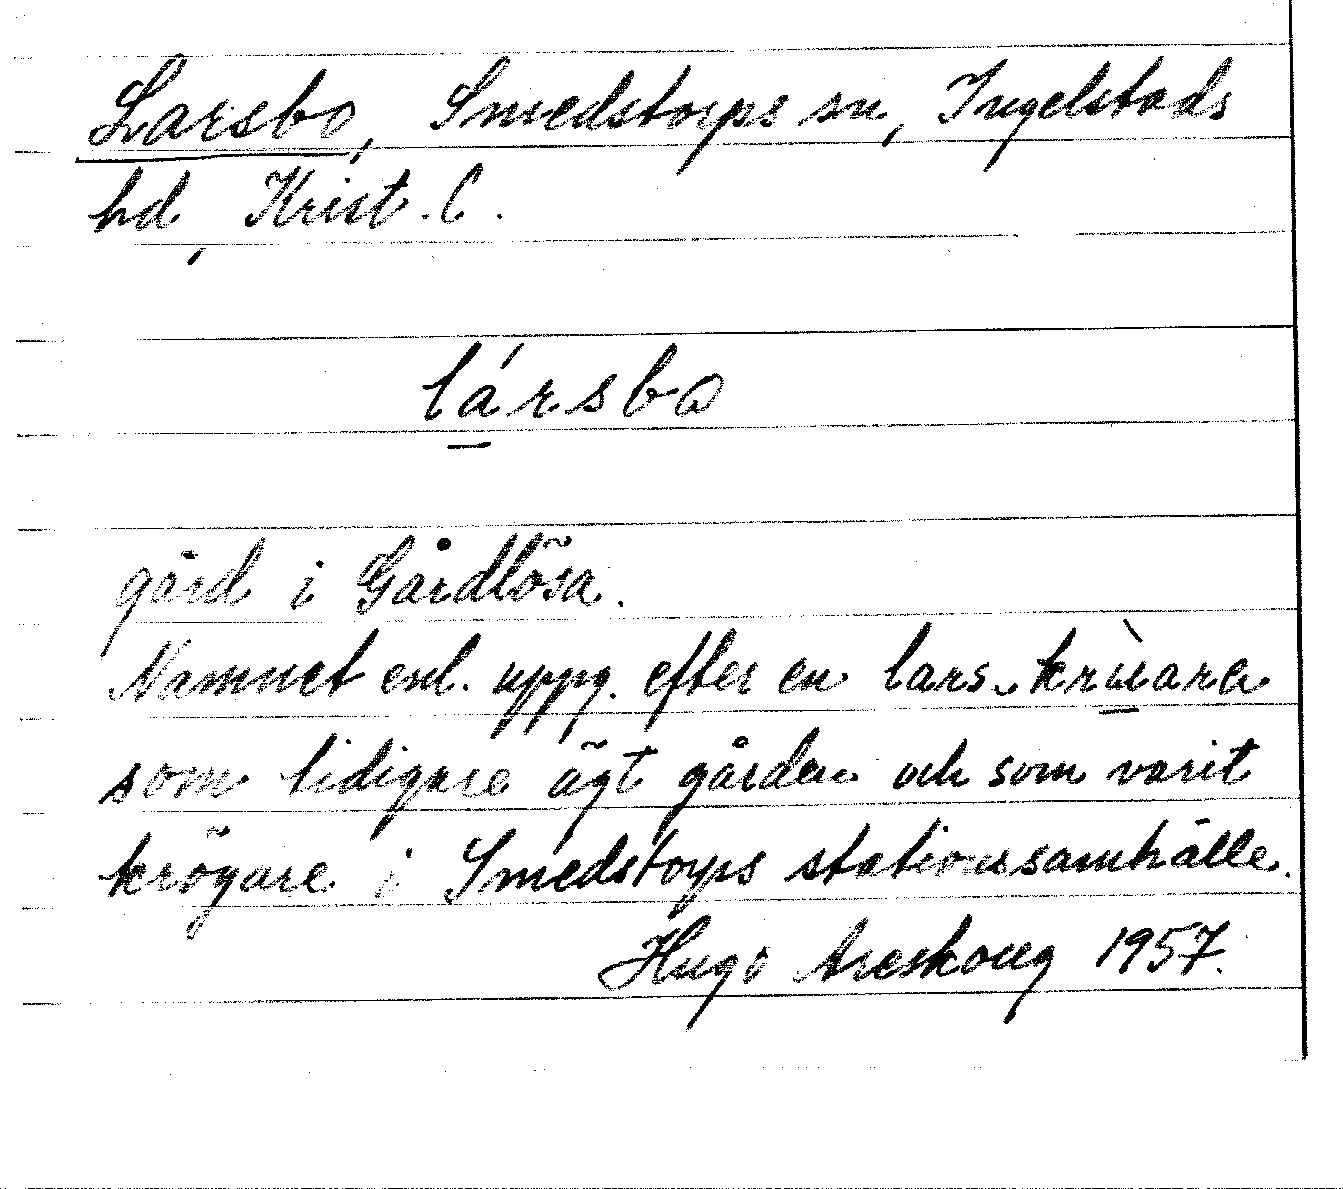 Larsbo, Smedstorps sn, Ingelstads
hd, Krist. C.
lársbo
gård i Gårdlösa.
Namnet enl. uppg. efter en lars krùara
som tidigare ägt gården och som varit
krögare i Smedstorps stationssamhälle.
Hugo Areskoug 1957.